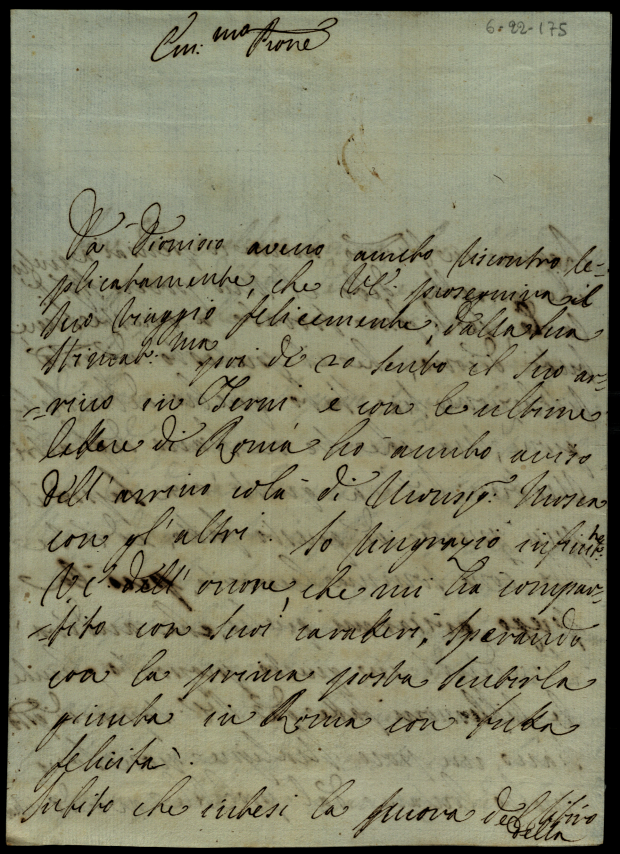 6-22-175
Em:ᵐᵒ Prone
Da Dionisio avevo avuto riscontro re=
plicatamente, che V.E. proseguiva il
suo viaggio felicemente, dalla sua
Stimat:ᵐᵃ poi di 20 sento il suo ar=
=rivo in Terni e con le ultime
lettere di Roma ho avuto aviso
dell' arrivo colà di Monsig.ʳ Mosca
con gl' altri. Io ringrazio infinit.ᵗᵉ
V.E. dell' onore, che mi ha compar=
=tito con suoi caratteri, sperando
con la prima posta sentirla
giunta in Roma con tutta
felicità.
Subito che intesi la nuova del
della